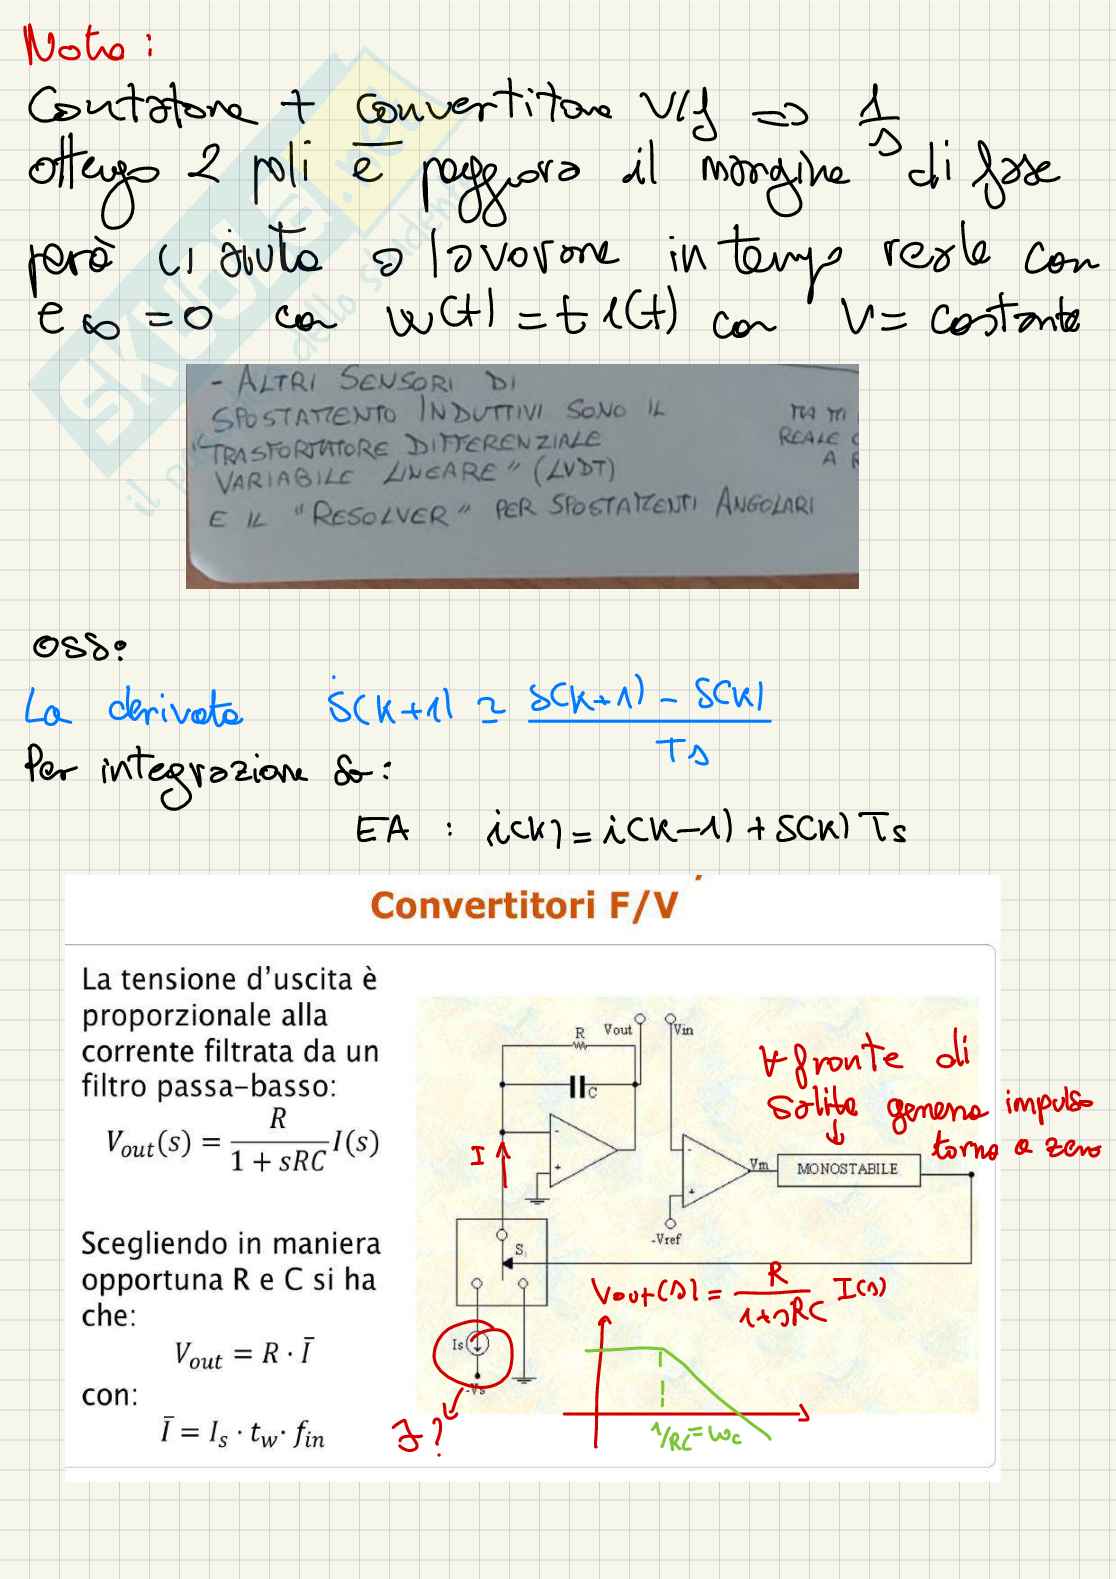 Nota:
Contatore + convertitore V/f => 1/s
ottengo 2 poli e peggiora il margine di fase
però ci aiuta a lavorare in tempo reale con
e∞ = 0 con w(t) = t 1(t) con V = costante
- ALTRI SENSORI DI
SPOSTAMENTO INDUTTIVI SONO IL
"TRASFORMATORE DIFFERENZIALE
VARIABILE LINEARE" (LVDT)
E IL "RESOLVER" PER SPOSTAMENTI ANGOLARI
REALE
A
SKUOLA.net
oss:
La derivata ṡ(k+1) ≃ (s(k+1) - s(k)) / Ts
Per integrazione so:
EA : i(k) = i(k-1) + s(k) Ts
Convertitori F/V
La tensione d'uscita è
proporzionale alla
corrente filtrata da un
filtro passa-basso:
Vout(s) = R / (1 + sRC) I(s)
Scegliendo in maniera
opportuna R e C si ha
che:
Vout = R · Ī
con:
Ī = Is · tw · fin
R
Vout
Vin
C
∀ fronte di
salita genera impulso
torna a zero
I
-
+
-
+
Vm
MONOSTABILE
-Vref
S1
Vout(s) = R / (1+sRC) I(s)
Is
-Vs
I?
1/RC = ωc